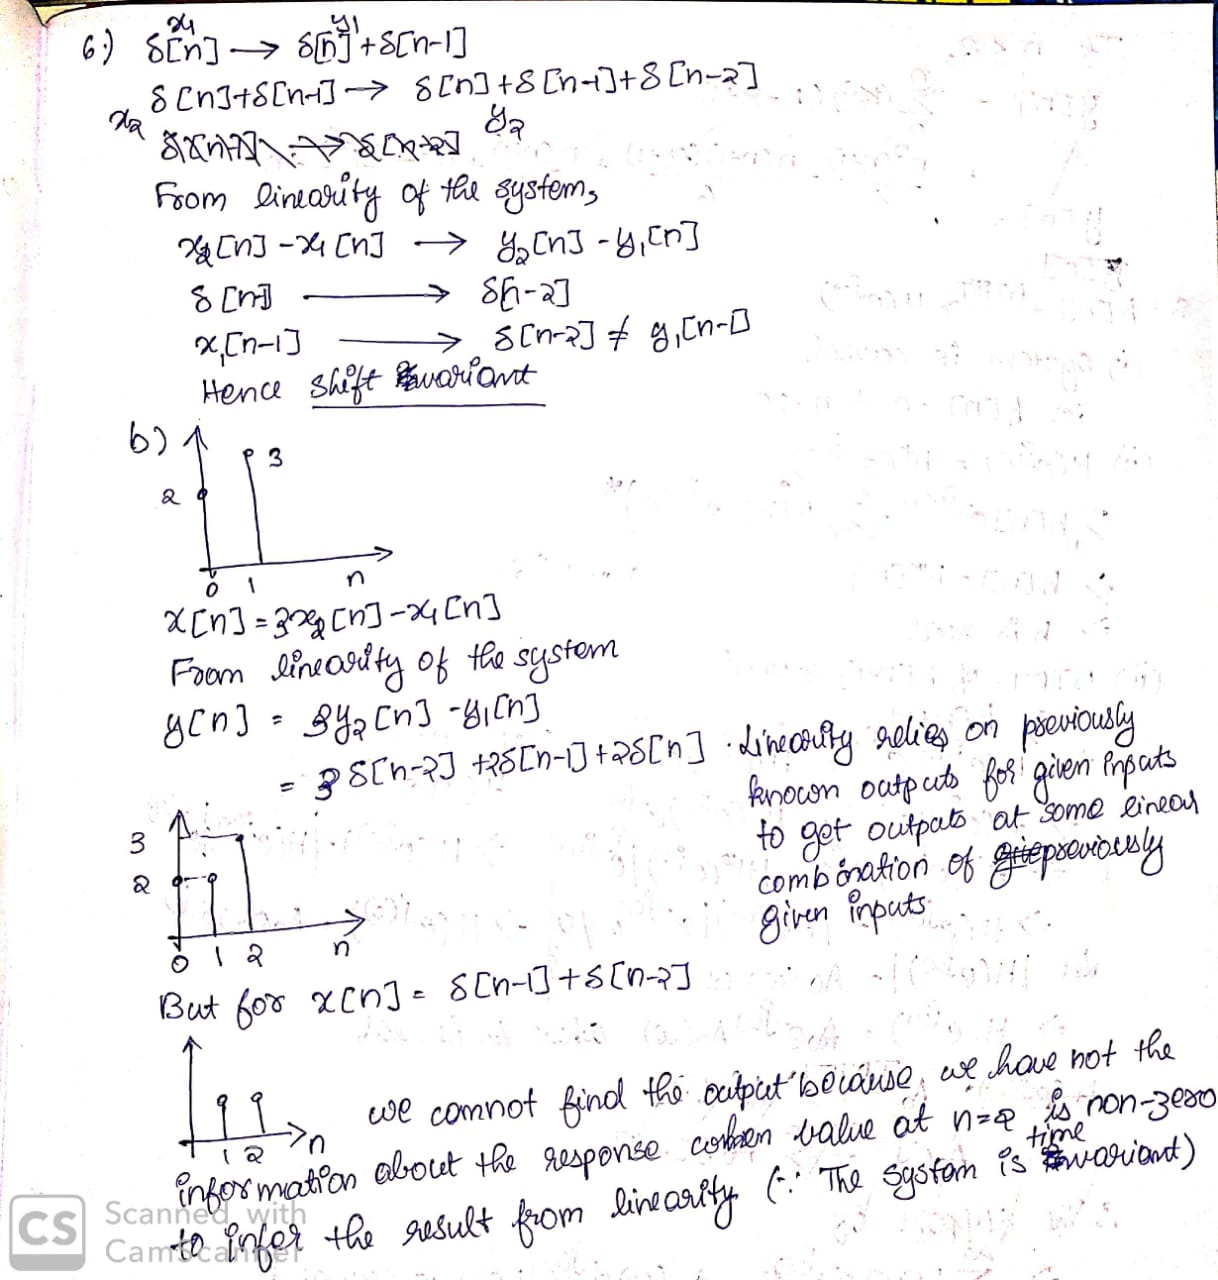 6.) δ[n] → δ[n] + δ[n-1]
x1 y1
δ[n]+δ[n-1] → δ[n]+δ[n-1]+δ[n-2]
x2 y2
From linearity of the system,
x2[n] - x1[n] → y2[n] - y1[n]
δ[n] → δ[n-2]
x1[n-1] → δ[n-2] ≠ y1[n-1]
Hence shift variant
b)
3
2
0 1 n
x[n] = 3x2[n] - x1[n]
From linearity of the system
y[n] = 3y2[n] - y1[n]
= 3δ[n-2] + 2δ[n-1] + 2δ[n]
. Linearity relies on previously
known outputs for given inputs
to get outputs at some linear
combination of previously
given inputs.
3
2
0 1 2 n
But for x[n] = δ[n-1] + δ[n-2]
1 2 n
we cannot find the output because, we have not the
information about the response when value at n=2 is non-zero
to infer the result from linearity (∵ The system is time variant)
CS Scanned with
CamScanner